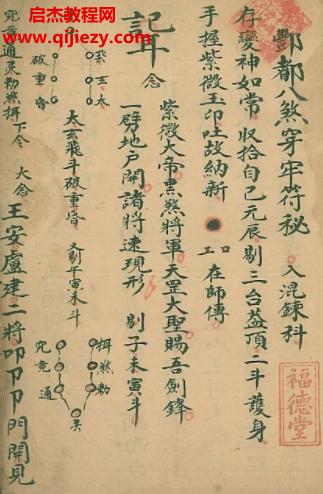 启杰教程网
www.qijiezy.cn
酆都八煞穿牢符秘　入混鍊科
存變神如常　収拾自己元辰　剔三台蓋頂　二斗護身
手握紫微玉印吐故納新　口工在師傳
記斗　念
紫微大帝黑煞將軍　天罡大聖賜吾劍鋒
一劈地戶開諸將速現形　剔子未寅斗
紫玄太
破重昏
太玄飛斗破重昏　又剔午寅未斗
究竟通
究竟通灵勅煞揖下令　大念
王安盧建二將叩卩卩門開見
福德堂